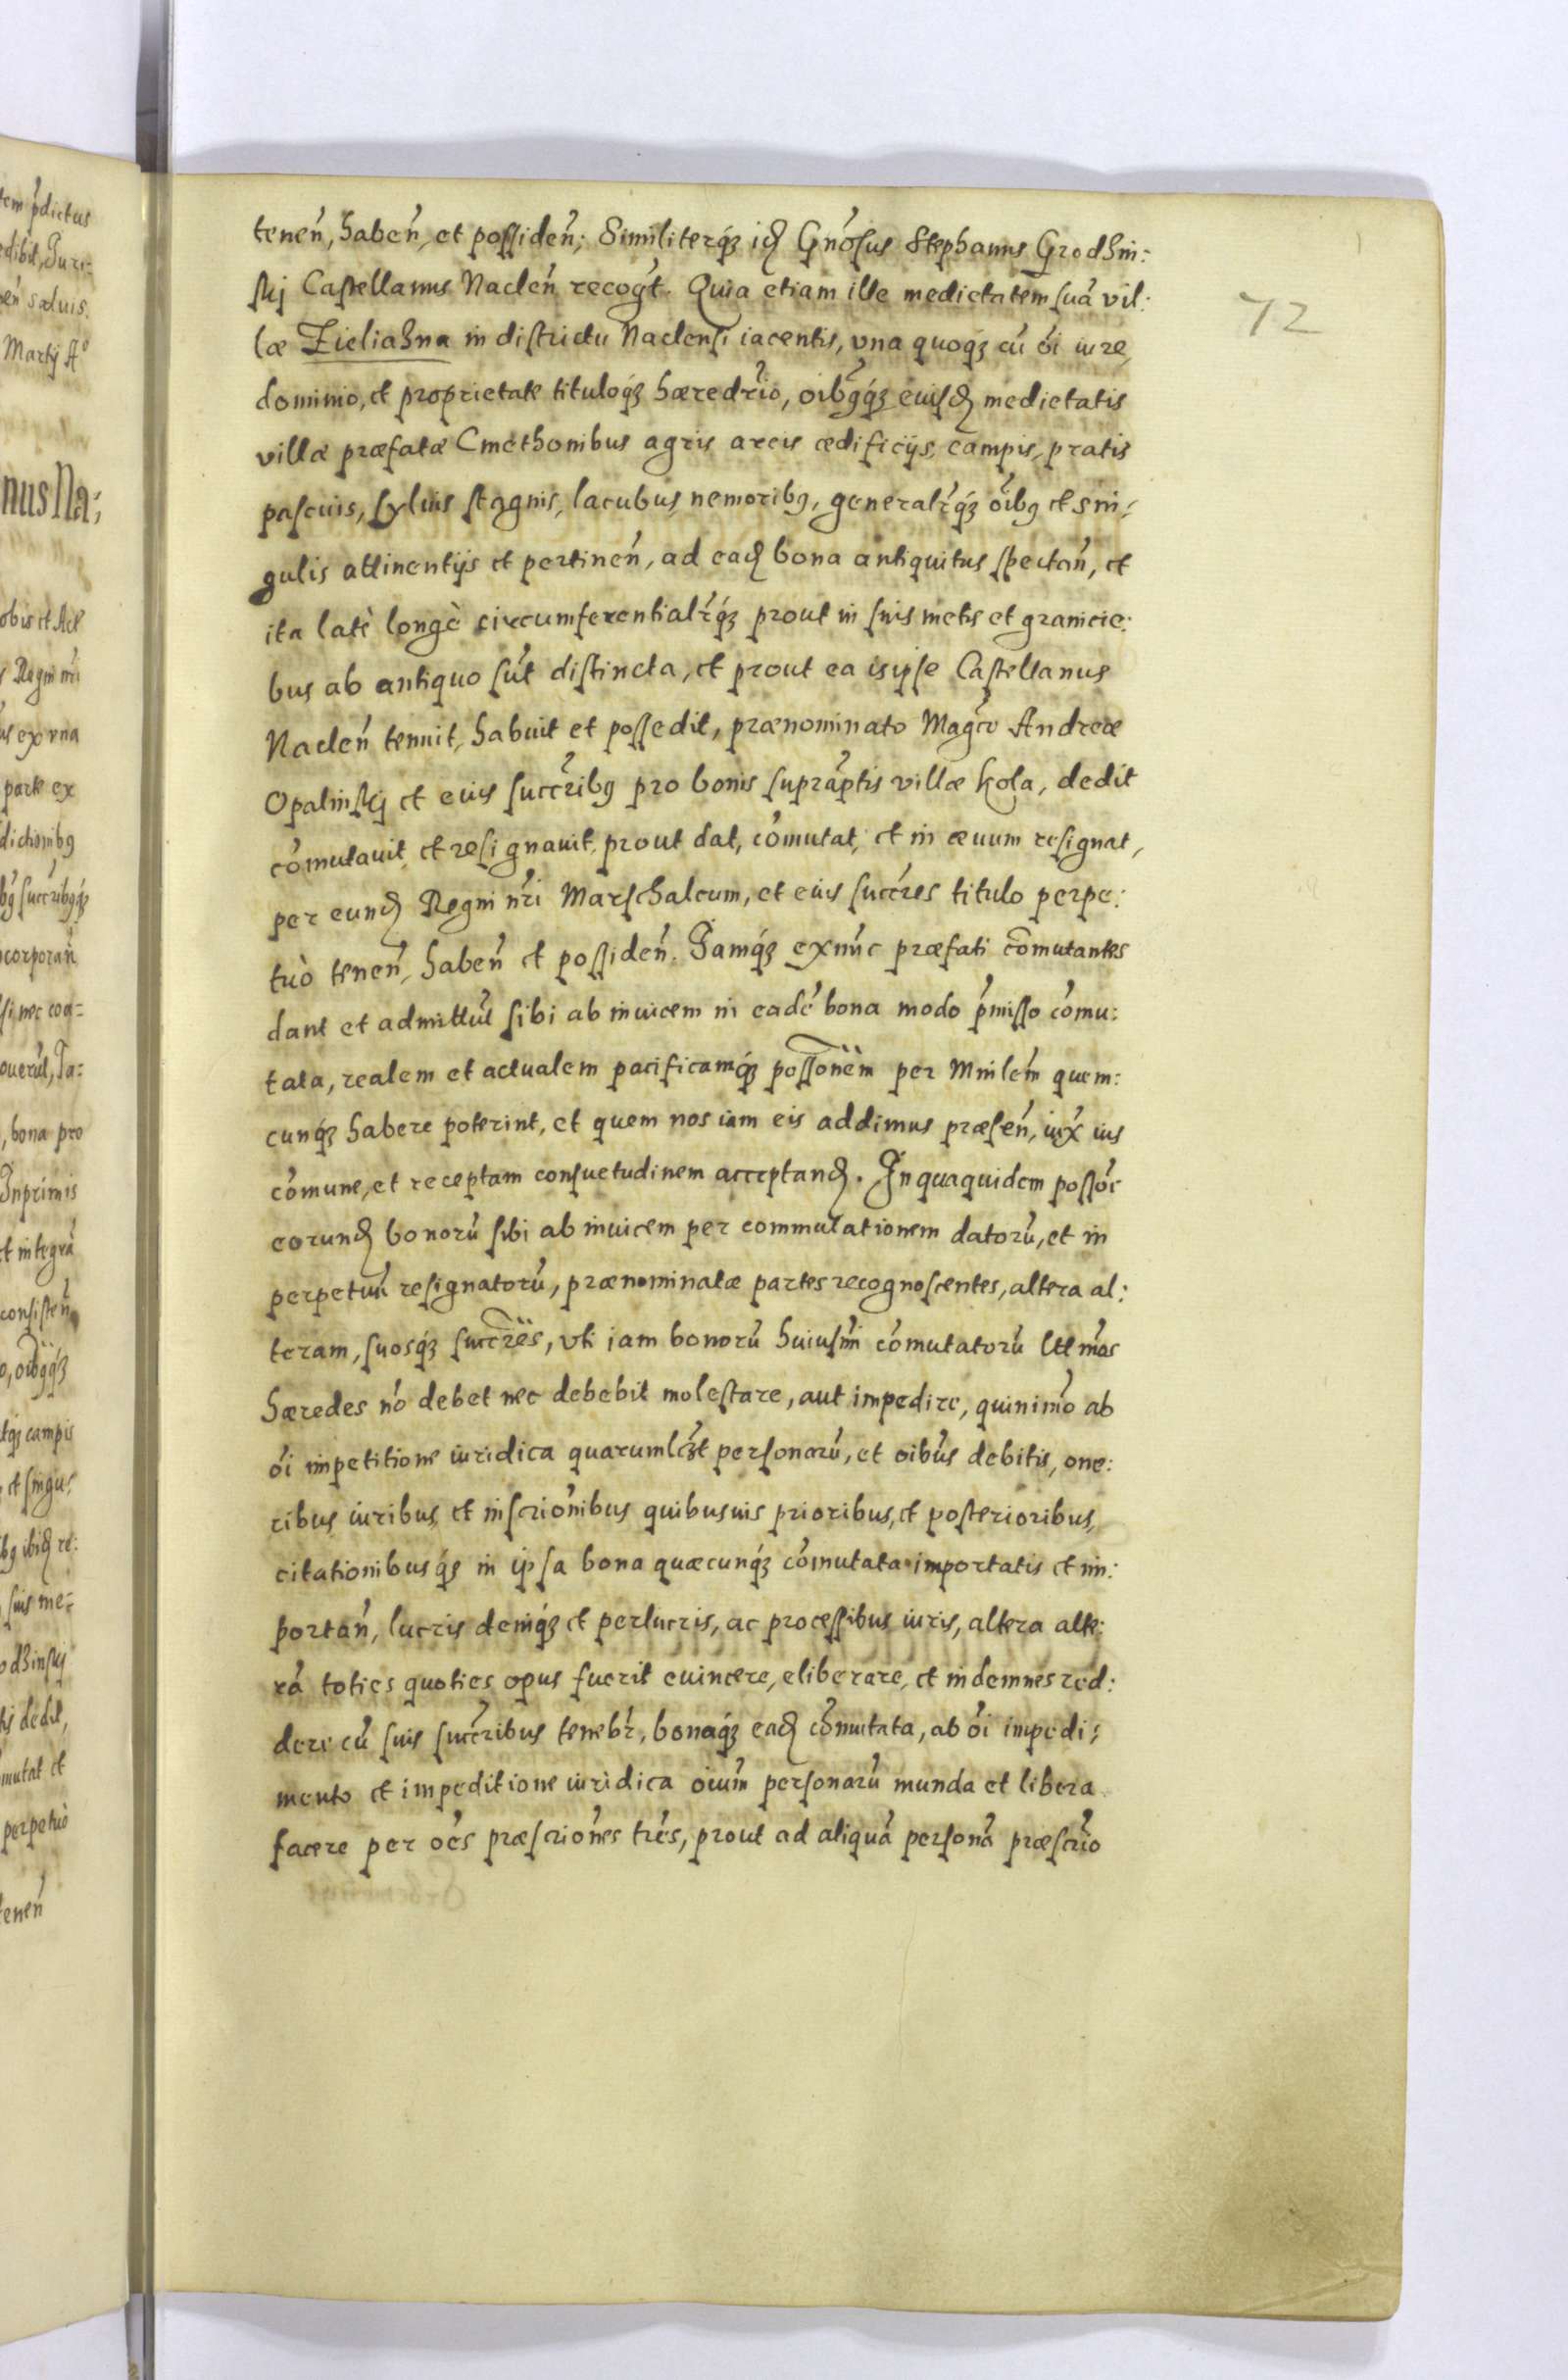 tenen̄, haben̄, et possiden̄; Similiterq́ꝫ idꝫ Gn̄osus Stephanus Grodzin:
skj Castellanus Naclen̄ recog̃t. Quia etiam ille medietatem suā vil:
læ Zieliazna in districtu Naclensi iacentis, vna quoq́ꝫ cū ōi iure,
dominio, et proprietate tituloq́ꝫ hæredr̄io, oībꝰq́ꝫ euisdꝫ medietatis
villæ præfatæ Cmethonibus agris areis ædificijs, campis, pratis
pascuis, syluis stagnis, lacubus, nemoribꝰ, generalr̄q́ꝫ oībꝰ et sin:
gulis attinentijs et pertinen̄, ad eadꝫ bona antiquitus spectan̄, et
ita latè longè circumferentialr̄q́ꝫ prout in suis metis et granicie:
bus ab antiquo sūt distincta, et prout ea is ipse Castellanus
Naclen̄ tenuit, habuit et possedit, prænominato Mag̃co Andreæ
Opalinskj et eius succr̄ibꝰ pro bonis suprap̄tis villæ Kola, dedit
cōmutauit, et resignauit, prout dat, cōmutat, et in æuum resignat,
per eundꝫ Regni nr̄i Marschalcum, et eius succr̄es titulo perpe:
tuò tenen̄, haben̄ et possiden̄. Jamq́ꝫ exnūc præfati cōmutantes
dant et admittūt sibi ab inuicem in eadē bona modo p̄misso cōmu:
tata, realem et actualem pacificamq́ꝫ possōnem per Minlem̄ quem:
cunq́ꝫ habere poterint, et quem nos iam eis addimus præsen̄, iux̄ ius
cōmune, et receptam consuetudinem acceptandꝫ. In quaquidem possōe
eorundꝫ bonorū sibi ab inuicem per commutationem datorū, et in
perpetuū resignatorū, prænominatæ partes recognoscentes, altera al:
teram, suosq́ꝫ succr̄es, vti iam bonorū huiusm̄i cōmutatorū lttmōs
hæredes nō debet nec debebit molestare, aut impedire, quinimō ab
ōi impetitione iuridica quarumlꝫt personarū, et oībus debitis, one:
ribus iuribus, et inscriōnibus quibusuis prioribus, et posterioribus,
citationibusq́ꝫ in ipsa bona quæcunq́ꝫ cōmutata importatis et im:
portan̄, lucris deniq́ꝫ et perlucris, ac processibus iuris, altera alte:
rā toties quoties opus fuerit euincere, eliberare, et indemnes red:
dere cū suis succr̄ibus tenebr̄, bonaq́ꝫ eadꝫ cōmutata, ab ōi impedi:
mento et impeditione iuridica oīum personarū munda et libera
facere per oēs præscriōnes tr̄es, prout ad aliquā personā præscr̄io
72